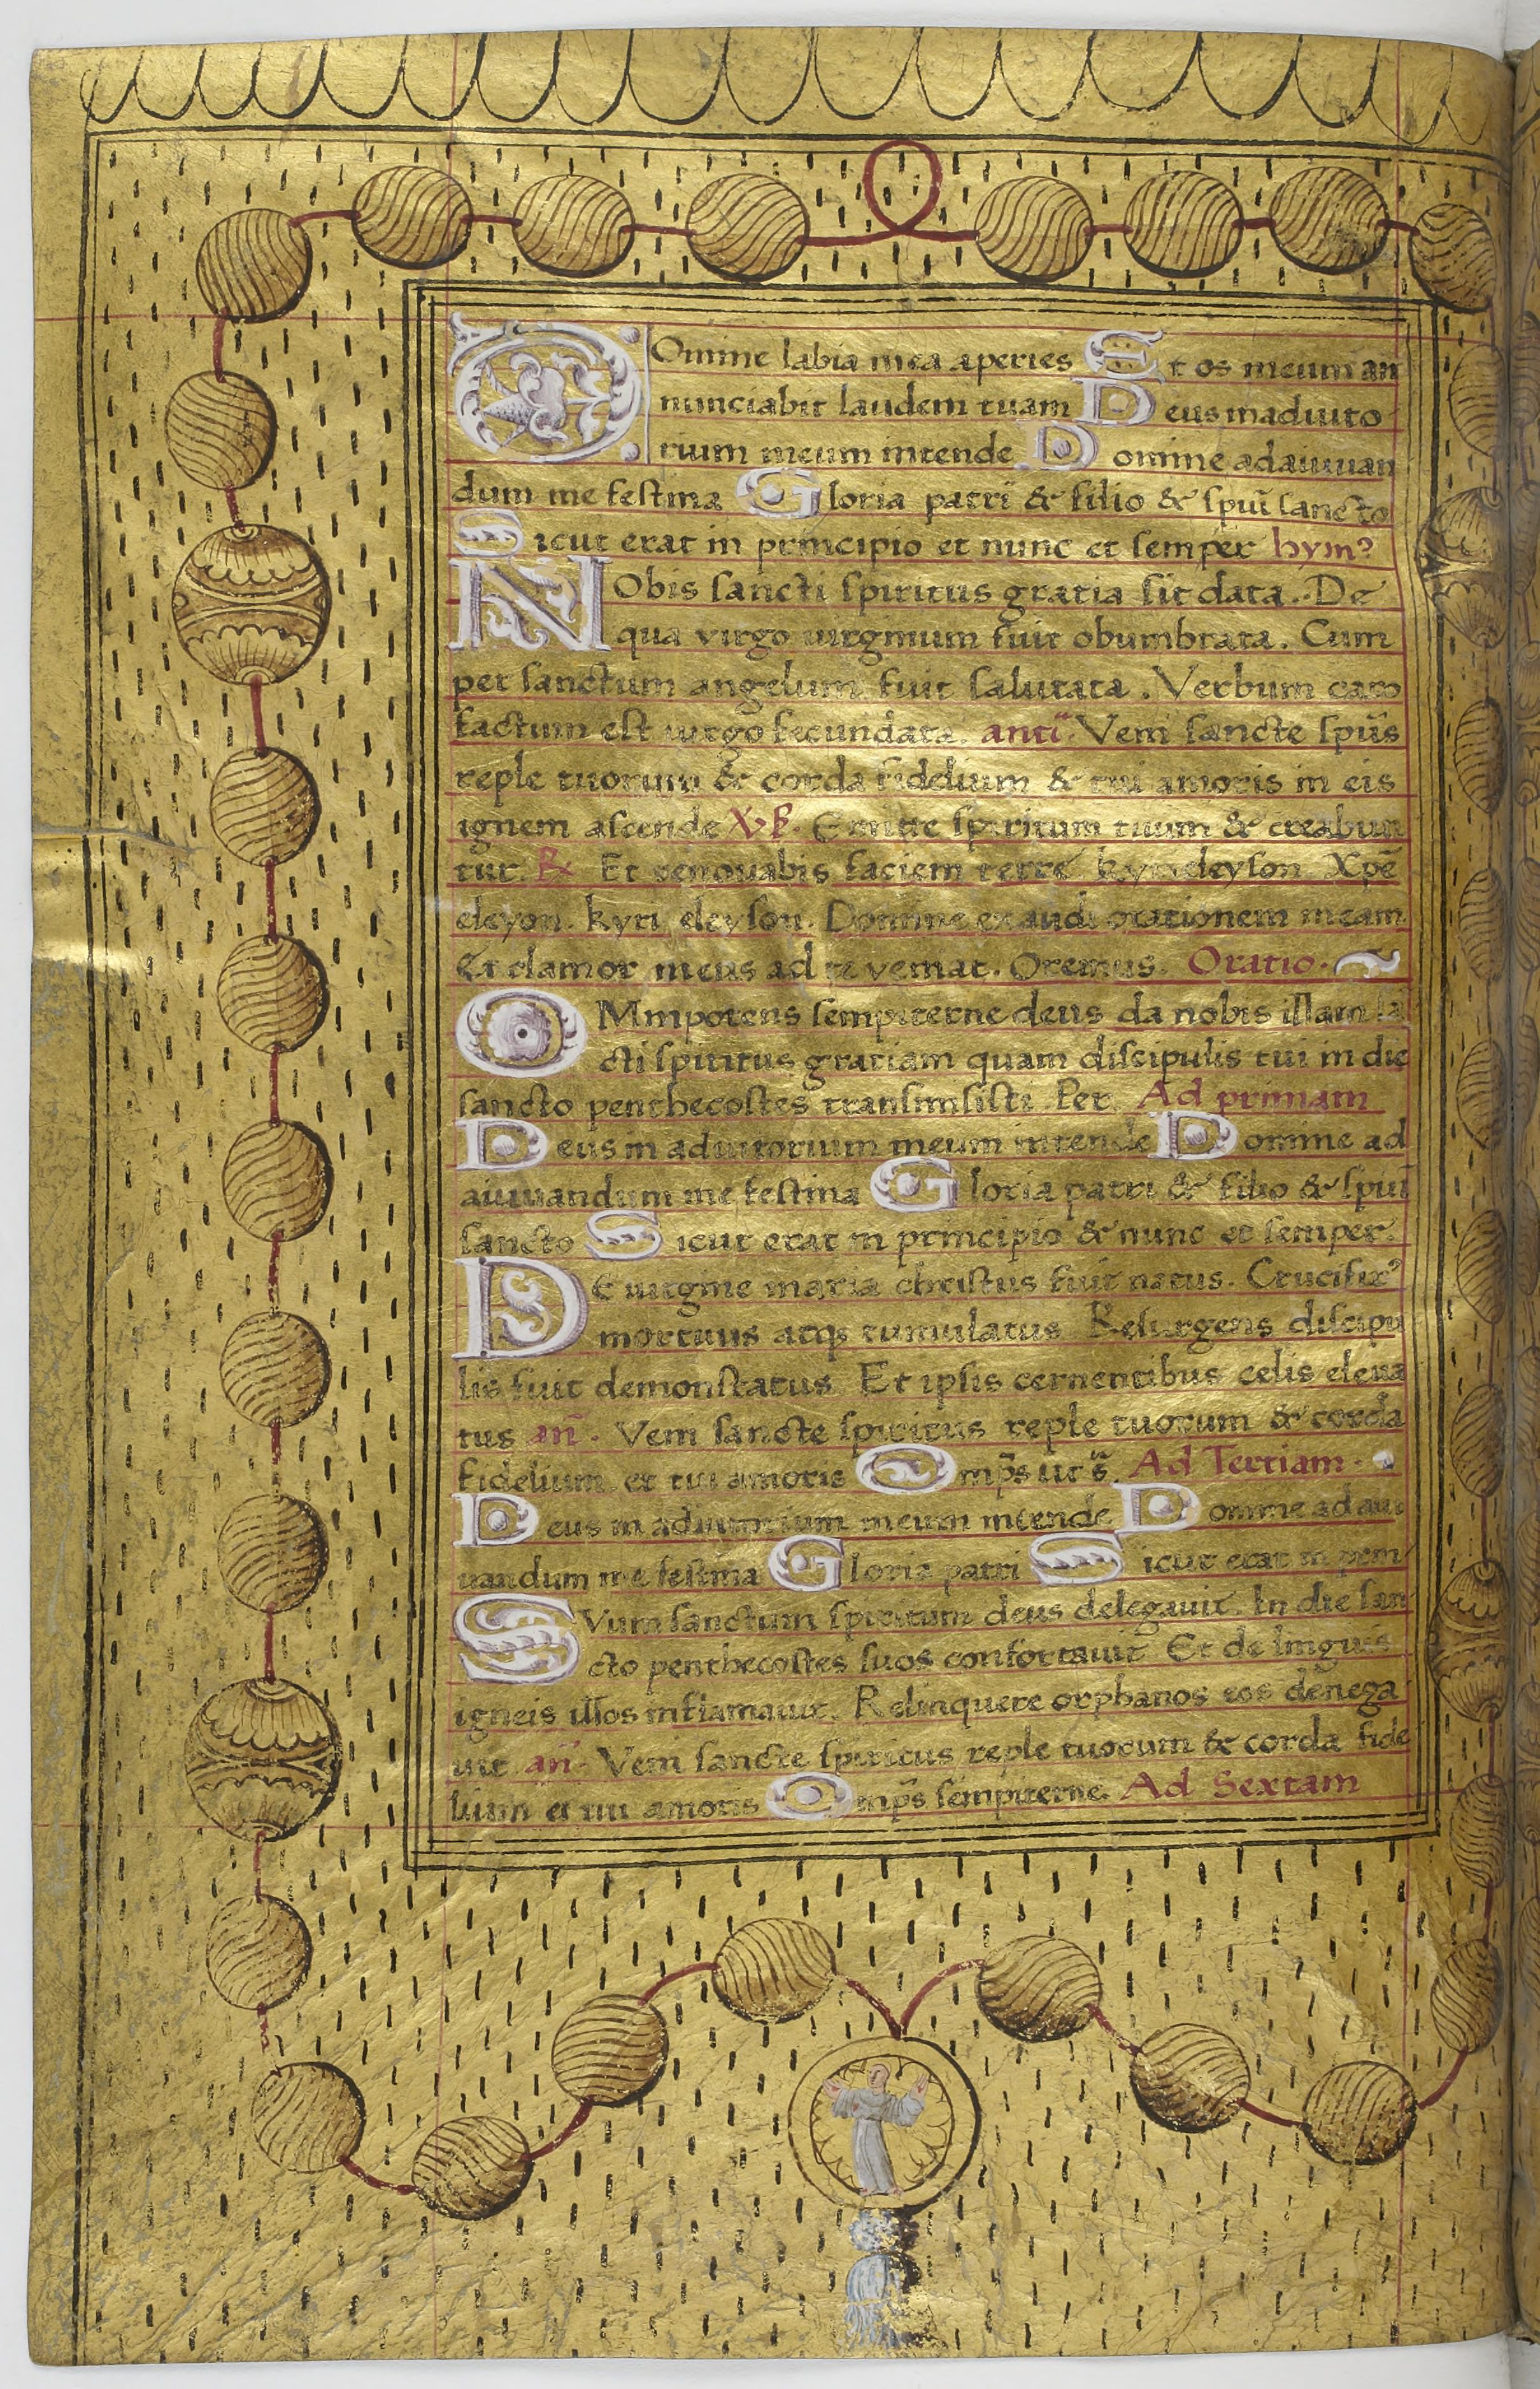 Domine labia mea aperies Et os meum an
nunciabit laudem tuam Deus in adiuto
rium meum intende Domine ad aiuuan
dum me festina Gloria patri & filio & spūi sancto
Sicut erat in principio et nunc et semper hymꝰ
NObis sancti spiritus gratia sit data. De
qua virgo uirginum fuit obumbrata. Cum
per sanctum angelum fuit salutata. Verbum caro
factum est uirgo fecundata. anti Veni sancte spūs
reple tuorum & corda fidelium & tui amoris in eis
ignem ascende ℣. Emitte spiritum tuum & creabun
tur. ℞ Et renouabis faciem terre kyri eleyson Xpē
eleyon. kyri eleyson. Domine exaudi orationem meam
Et clamor meus ad te veniat. Oremus. Oratio.
OMnipotens sempiterne deus da nobis illam sā
cti spiritus gratiam quam discipulis tui in die
sancto penthecostes transimsisti Per. Ad primam
Deus in adiutorium meum intende Domine ad
aiuuandum me festina Gloria patri & filio & spūi
sancto Sicut erat in principio & nunc et semper.
DE uirgine maria christus fuit natus. Crucifixꝰ
mortuus atqꝫ tumulatus Resurgens discipu
lis fuit demonstatus Et ipsis cernentibus celis eleua
tus an̄. Veni sancte spiritus reple tuorum & corda
fidelium et tui amoris Omp̄s ut s̄. Ad Tertiam.
Deus in adiutorium meum intende Domine ad aiu
uandum me festina Gloria patri Sicut erat in prin
SVum sanctum spiritum deus delegauit. In die san
cto penthecostes suos confortauit Et de linguis
igneis illos inflamauit. Relinquere orphanos eos denega
uit an̄. Veni sancte spiritus reple tuorum & corda fide
lium et tui amoris Omp̄s sempiterne. Ad Sextam